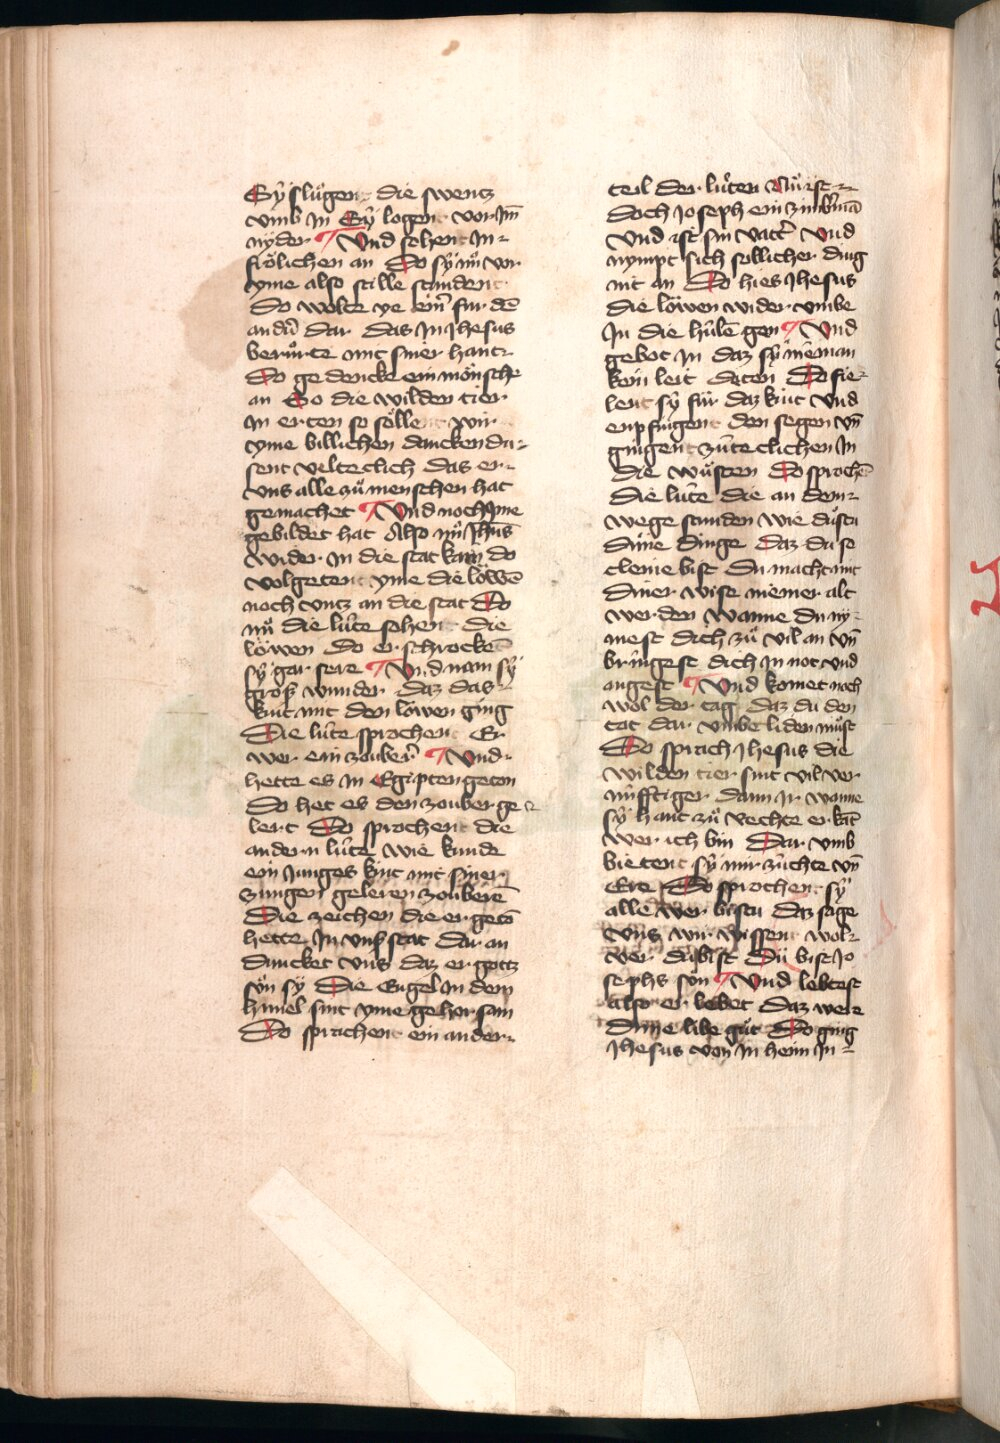 Sÿ slůgent die swentz
vmb in Sÿ logent vor im̄
nyder ¶ Vnd sehent in
frölichen an Do sÿ nů vor
yme also stille stundent
Do wolte ye ein͛ fur dē
and͛n dar das in Jhesus
berůrte mit siner hant
Do gedencke ein mönsche
an So die wilden tier
in erten so söllent wir
yme billichen dancken du
sent velteclich das er
vns alle zů menschen hat
gemachet ¶ Vnd noch ime
gebildet hat Also nů Jhūs
wider in die stat kam do
volgetent yme die löwē
noch vntz an die stat Do
nů die lüte sehent die
löwen do erschrockē
sÿ gar sere ¶ Vnd nam sÿ
groß wunder daz das
kint mit den löwen ging
Die lüte sprochent Er
wer ein zouber͛ ¶ Vnd
hette es in Egipten geton
Do het es den zouber ge
lert Do sprochent die
andern lüte wie kunde
ein junges kint mit siner
zungen geleren zouberē
Die zeichen die er getō
hette in vns͛ stat dar an
duncket vns daz er gottz
sůn sÿ Die Engel in dem
himel sint yme gehorsam
Do sprachent ein ander
teil der lüten
doch Joseph ein zimb͛mā
Vnd ist sin vatt͛ Vnd
nympt sich sollicher ding
nit an Do hies Jhesus
die löwen wider vmbe
in die hülē gen ¶ Vnd
gebot in daz sÿ nieman
kein leit dáten Do fie
lent sÿ für daz kint Vnd
enpfingent den segen vn̄
gingent zůteclichen in
die wůsten Do sprochē
die lüte die an dem
wege stunden wie důstu
dine dinge daz du so
cleine bist Du macht mit
diner wise niemer alt
werden wanne du ny
mest dich zů vil an vn̄
bringest dich in not vnd
angest ¶ Vnd komet noch
wol der tag daz du den
tot dar vmbe liden můst
Do sprach Jhesus die
wilden tier sint vil ver
nüfftiger dann ir wanne
sÿ hant zů rechte erkāt
wer ich bin Dar vmb
bietent sÿ mir züchte vn̄
Ere Do sprochent sÿ
alle wer bistu daz sage
vns wir wissent wol
wer du bist Du bist Jo
sephs sůn ¶ Vnd lebtest
also er lebet daz were
dime libe gůt Do ging
Jhesus von in heim in